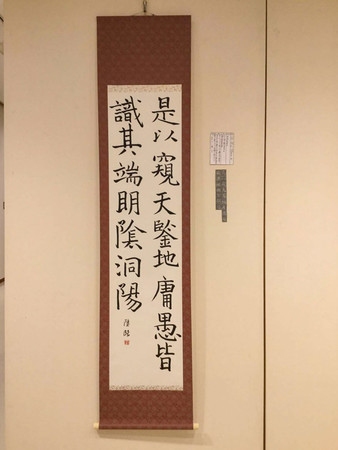 是以窺天鑒地庸愚皆
識其端明陰洞陽